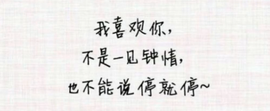 我喜欢你，
不是一见钟情，
也不能说停就停~